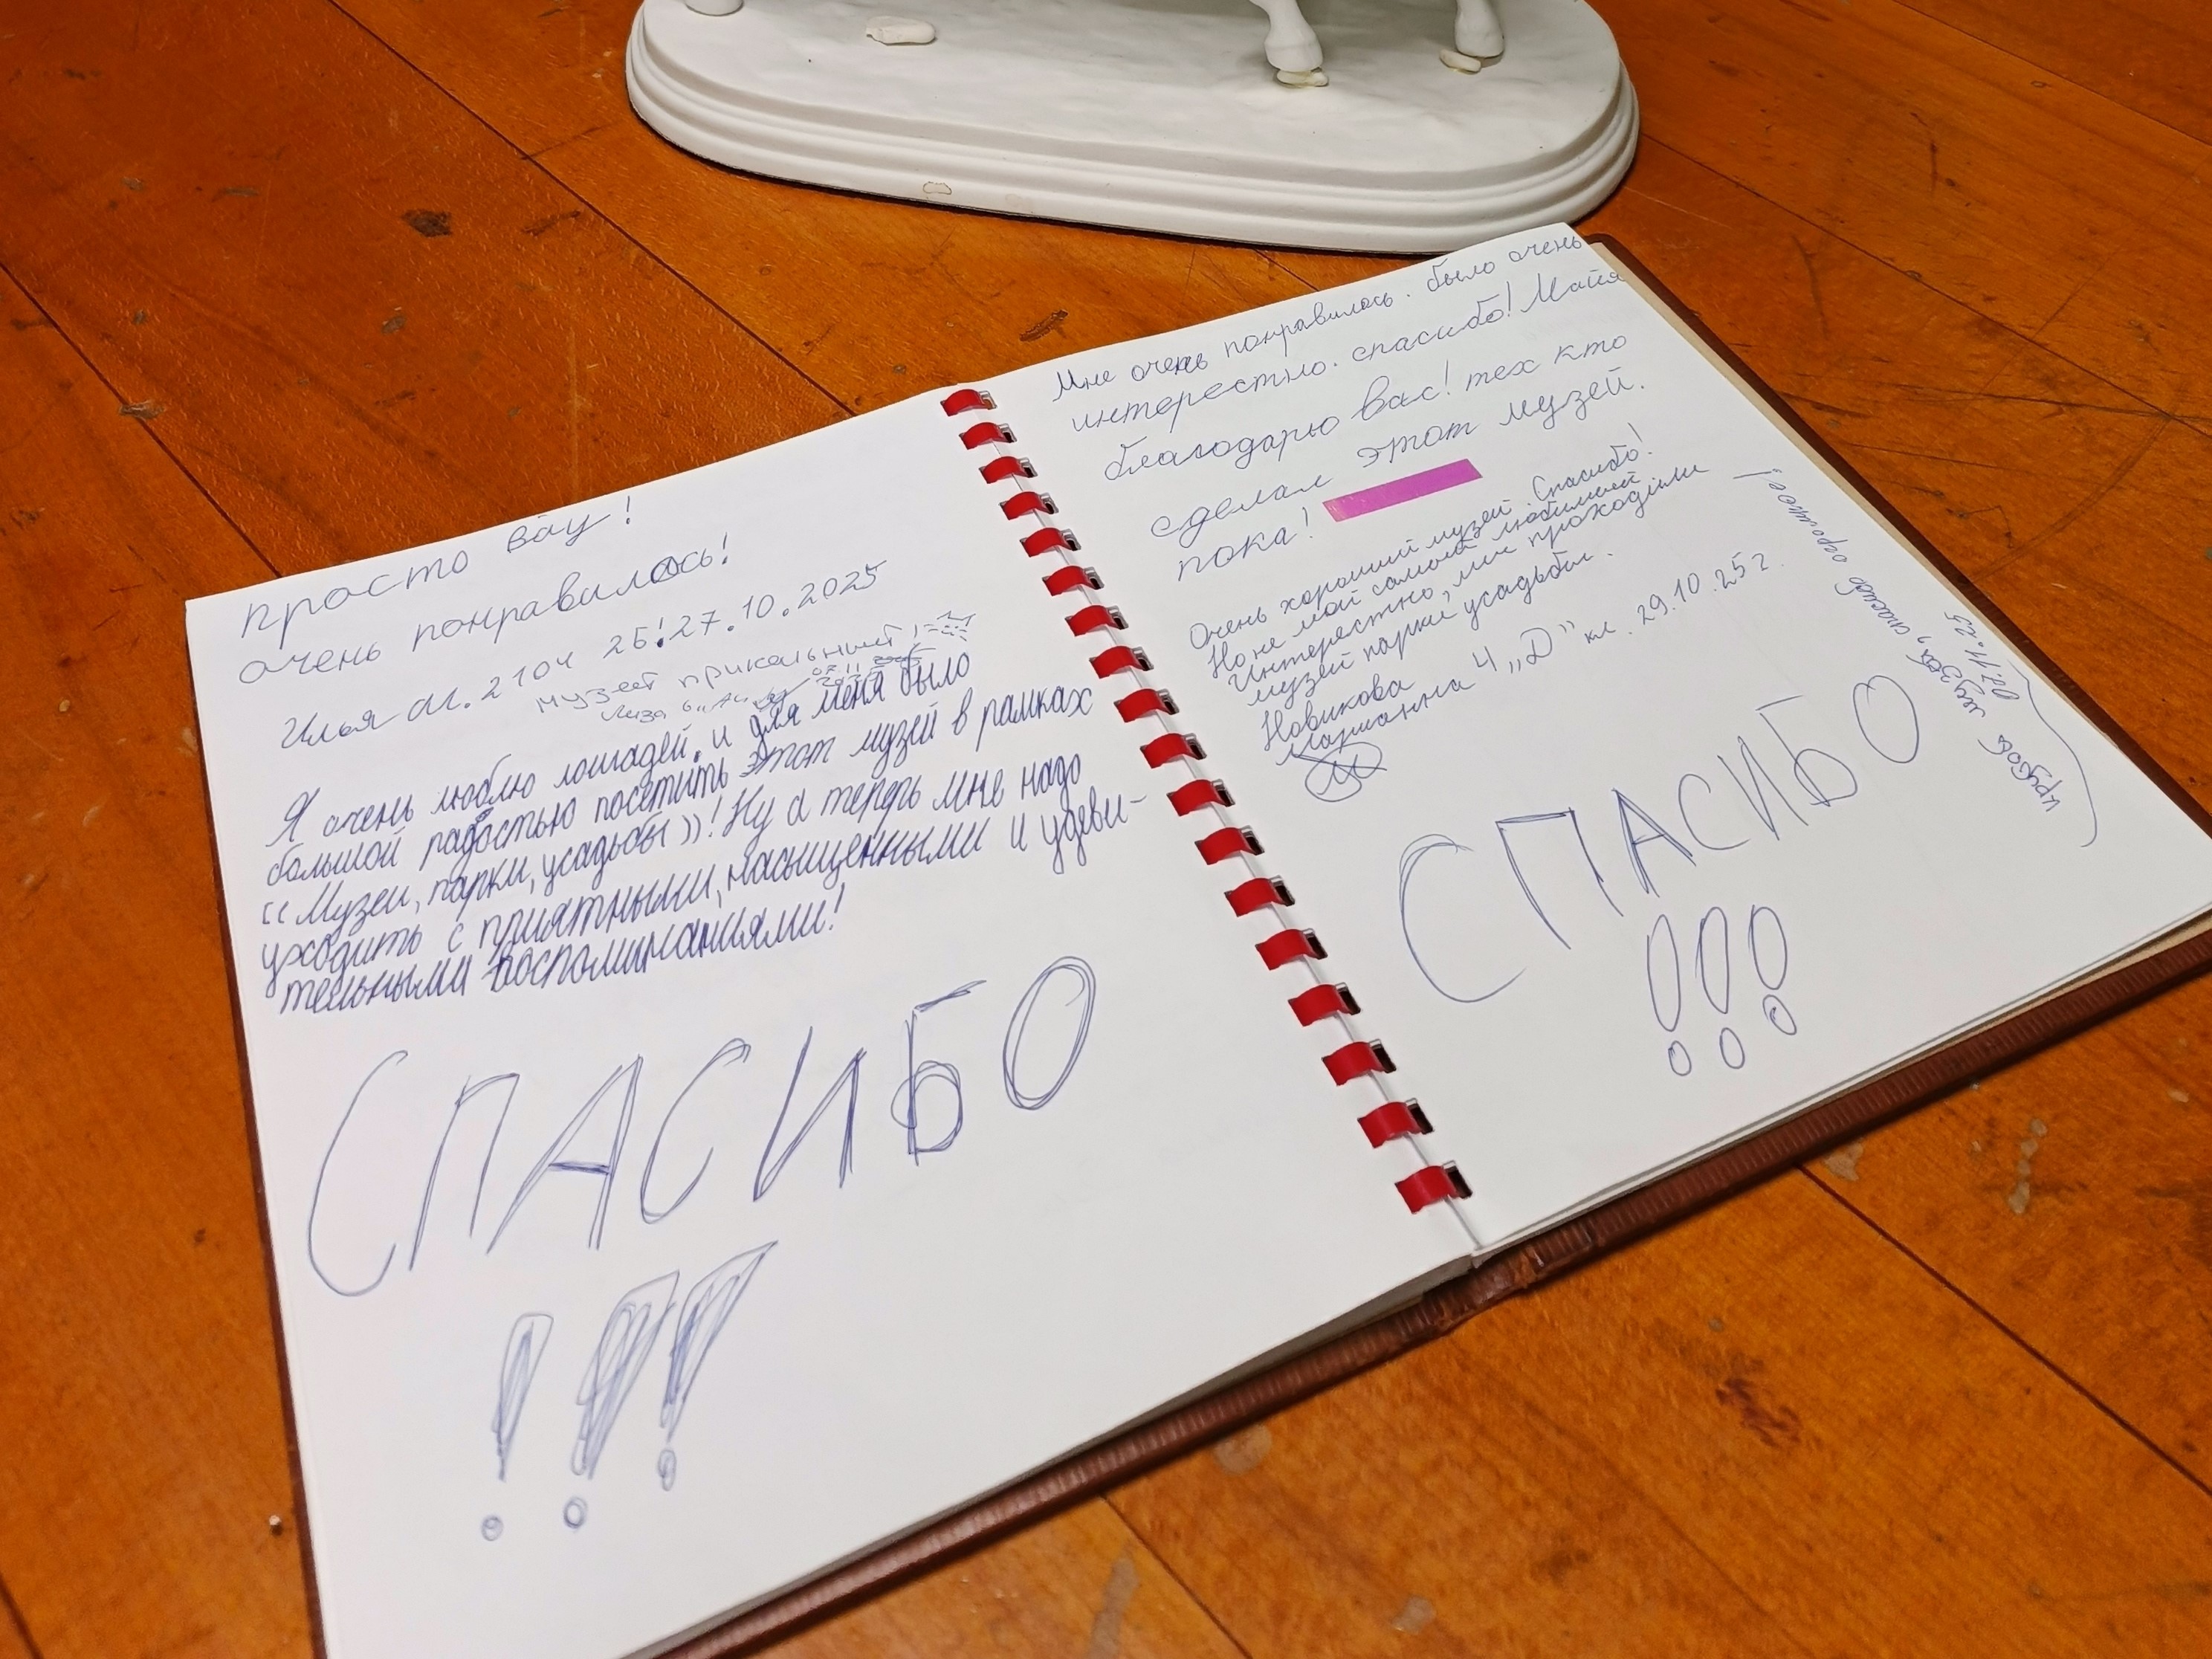 просто вау!
очень понравилось!
Илья
25! 27.10.2025
музей прикольный!
Лиза 6 „А"
Я очень люблю лошадей, и для меня было
большой радостью посетить этот музей в рамках
«Музеи, парки, усадьбы»! Ну а теперь мне надо
уходить с приятными, насыщенными и удеви-
тельными воспоминаниями!
СПАСИБО
!!!
Мне очень понравилось. было очень
интерестно. спасибо! Майя
благодарю вас! тех кто
сделал этот музей.
пока!
Очень хороший музей. Спасибо!
Но не мой самый любимый
Интерестно, мы проходили
музей парки усадьбы.
Новикова
Марианна 4 „D" кл. 29.10.25 г.
СПАСИБО
!!!
музей, спасибо огромное!
07.11.25